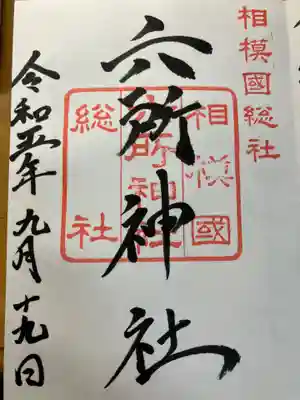 相模國総社
六所神社
相模國
六所神社
総社
令和五年九月十九日